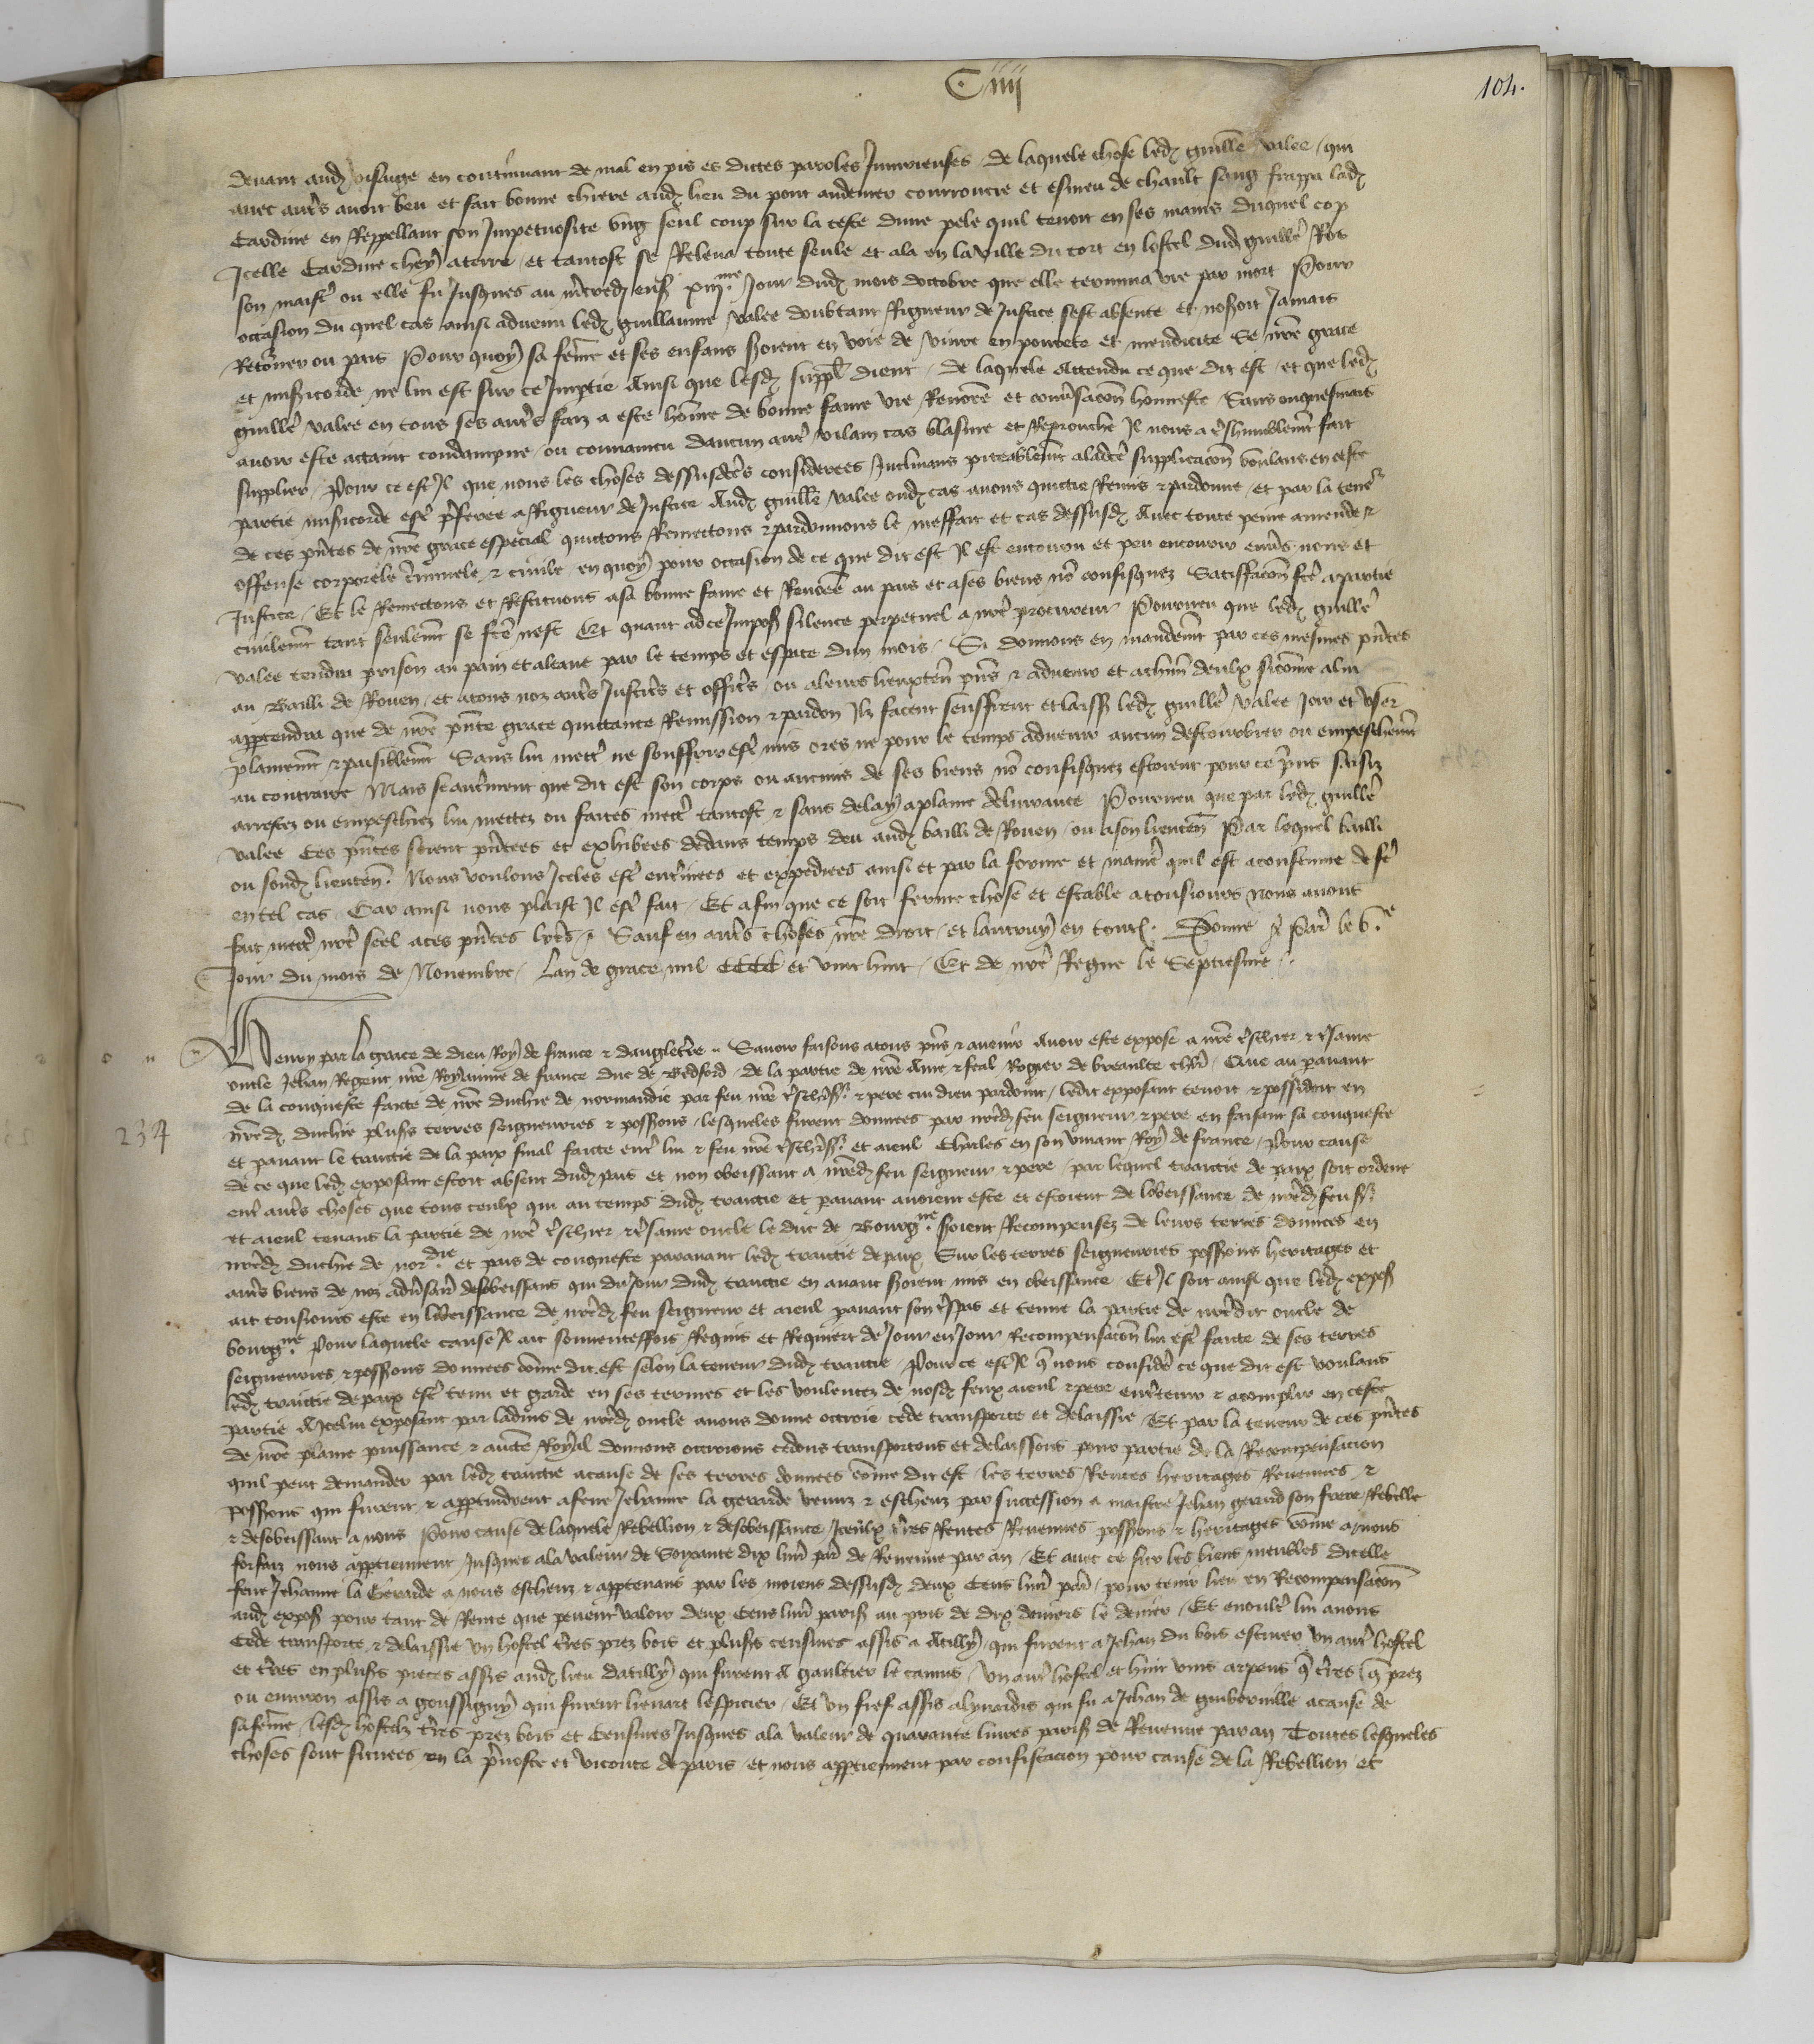 Ciiij
104.
devant aud visaige en continuant de mal en pis es dictes paroles Iniurieuses de laquele chose led guille valee qui
avec autrs avoit beu et fait bonne chiere aud lieu du pont audemer courroucie et esmeu de chault sang frappa lad
Cardine en Reppellant son Impetuosite ung seul coup sur la teste dune pele quil tenoit en ses mains duquel cop
Icelle Cardine chey a terre et tantost se Releva toute seule et ala en la ville du tort en lostel dud guille Ros
son maistre ou elle fu Jusques au mercred ens xiiime Jour dud mois doctobre que elle termina vie par mort Pour
occasion du quel cas ainsi advenu led guillaume valee doubtant Rigueur de Justice sest absente et noseroit Jamais
Retorner ou pais Pour quoy sa feme et ses enfans seroient en voie de vivre en povrete et mendicite se nre grace
et misicorde ne lui est sur ce Impartie Ainsi que lesd suppl dient de laquele Attendu ce que dit est et que led
guille valee en tous ses autrs faiz a este home de bonne fame vie Renomee et conversacon honneste Sans onquesmais
avoir este attaint condampne ou convaincu daucun autr vilain cas blasme et Reprouche Il nous a treshumblemt fait
supplier Pour ce est Il que nous les choses dessusdes considerees Inclinans piteablemt a lade supplicacon voulans en ceste
partie misicorde estr preferee a Rigueur de Justice Aud guille valee oud cas avons quictie Remis et pardonne et par la teneur
de ces pntes de nre grace especial quictons Remettons et pardonnons le meffait et cas dessusd Avec toute peine amende et
offense corporele criminele et civile en quoy pour occasion de ce que dit est Il est encouru et peu encourir envrs nous et
Justice Et le Remectons et Restituons a sa bonne fame et Renomee au pais et a ses biens no confisquez Satisfacon fce a partie
civilemt tant seulemt se fce nest Et quant ad ce Imposs silence perpetuel a nre procureur Pourveu que led guille
valee tendra prison au pain et a leaue par le temps et espace dun mois Si donnons en mandemt par ces mesmes pntes
au Bailli de Rouen et a tous noz autrs Justicrs et officrs ou a leurs lieuxten pns et advenir et a chun deulx sicome a lui
appartendra que de nre pnte grace quictance Remission et pardon Ilz facent seuffrent et laiss led guille valee Joir et user
plainemt et paisiblemt Sans lui mettre ne souffrir estr mis ores ne pour le temps advenir aucun destourbier ou empeschemt
au contraire Mais se autremt que dit est son corps ou aucuns de ses biens no confisquez estoient pour ce prins saisiz
arrestez ou empeschiez lui mettez ou faites mettr tantost et sans delay a plaine delivrance Pourveu que par led guille
valee Ces pntes soient pntees et exhibees dedans temps deu aud bailli de Rouen ou a son lieuten Par lequel bailli
ou sond lieuten Nous voulons Iceles estr enterinees et expediees ainsi et par la forme et manie quil est acoustume de fe
en tel cas Car ainsi nous plaist Il estr fait Et afin que ce soit ferme chose et estable a tousiours nous avons
fait mettr nre seel a ces pntes lres Sauf en autrs choses nre droit et lautruy en toutes Donne a Paris le Ve
Jour du mois de Novembre Lan de grace mil CCCC et vint huit Et de nre Regne le Septiesme
Henry par la grace de dieu Roy de france et dangleterre Savoir faisons a tous pns et avenir Avoir este expose a nre treschier et tresame
oncle Jehan Regent nre Royaume de france duc de Bedford de la partie de nre Ame et feal Rogier de breaulte chlr Que au paravant
de la conqueste faicte de nre duchie de normandie par feu nre treschrs et pere cui dieu pardoint ledit exposant tenoit et possidoit en
nred duchie plusrs terres seigneuries et possions lesqueles furent donnees par nred feu seigneur et pere en faisant sa conqueste
et pavant le traictie de la paix final faicte entr lui et feu nre treschrs et aieul Charles en son vivant Roy de france Pour cause
de ce que led exposant estoit absent dud pais et non obeissant a nred feu seigneur et pere par lequel traictie de paix soit ordene
entr autrs choses que tous ceulx qui au temps dud traictie et paravant avoient este et estoient de lobeissance de nred feu sr
et aieul tenans la partie de nre treschier et tresame oncle le duc de Bourgne seroient Recompensez de leurs terres donnees en
nred duchie de nordie et pais de conqueste paravant led traictie de paix Sur les terres seigneuries possions heritages et
autrs biens de noz adversar desobeissans qui du Jour dud traictie en avant seroient mis en obeissance Et Il soit ainsi que led expos
ait tousiours este en lobeissance de nred feu seigneur et aieul pavant son trespas et tenu la partie de nredit oncle de
bourgne Pour laquele cause Il ait souventeffois Requis et Requiert de Jour en Jour Recompensacon lui estr faicte de ses terres
seigneuries et possions donnees come dit est selon la teneur dud traictie Pour ce est Il q nous considere ce que dit est voulans
led traictie de paix estr tenu et garde en ses termes et les voulentez de nosd feux aieul et pere entretenir et acomplir en ceste
partie A Icelui exposant par ladvis de nred oncle avons donne octroie cede transporte et delaissie Et par la teneur de ces pntes
de nre plaine puissance et aucte Royal donnons octroions cedons transportons et delaissons pour partie de la Recompensacion
quil peut demander par led traictie a cause de ses terres donnees come dit est les terres Rentes heritages Revenues et
possions qui furent et appartindrent a feue Jehanne la gerarde venuz et escheuz par succession a maistre Jehan gerard son frere Rebelle
et desobeissant a nous Pour cause de laquele Rebellion et desobeissance Iceulx tres Rentes Revenues possions et heritages come a nous
forfaiz nous appartiennent Jusques a la valeur de Soixante dix livr par de Revenue par an Et avec ce sur les biens meubles dicelle
feue Jehanne la Gerarde a nous escheuz et apptenans par les moiens dessusd deux Cens livr par pour tenir lieu en Recompensacon
aud expos pour tant de Rente que pevent valoir deux Cens livr paris au pris de dix deniers le denier Et enoultr lui avons
Cede transporte et delaissie un hostel tres prez bois et plusrs censives assis a Atilly qui furent a Jehan du bois escuier un autr hostel
et tres en plusrs pieces assis aud lieu datilly qui furent A gaultier le camus Un autr hostel et huit vins arpens q tres q prez
ou environ assis a goussigny qui furent lienart lespicier Et un fief assis a lyverdis qui fu a Jehan de guiberville a cause de
sa feme lesd hostelz tres prez bois et Censives Jusques a la valeur de quarante livres paris de Revenue par an Toutes lesqueles
choses sont situees en la prevoste et viconte de paris et nous appartiennent par confiscacion pour cause de la Rebellion et
234